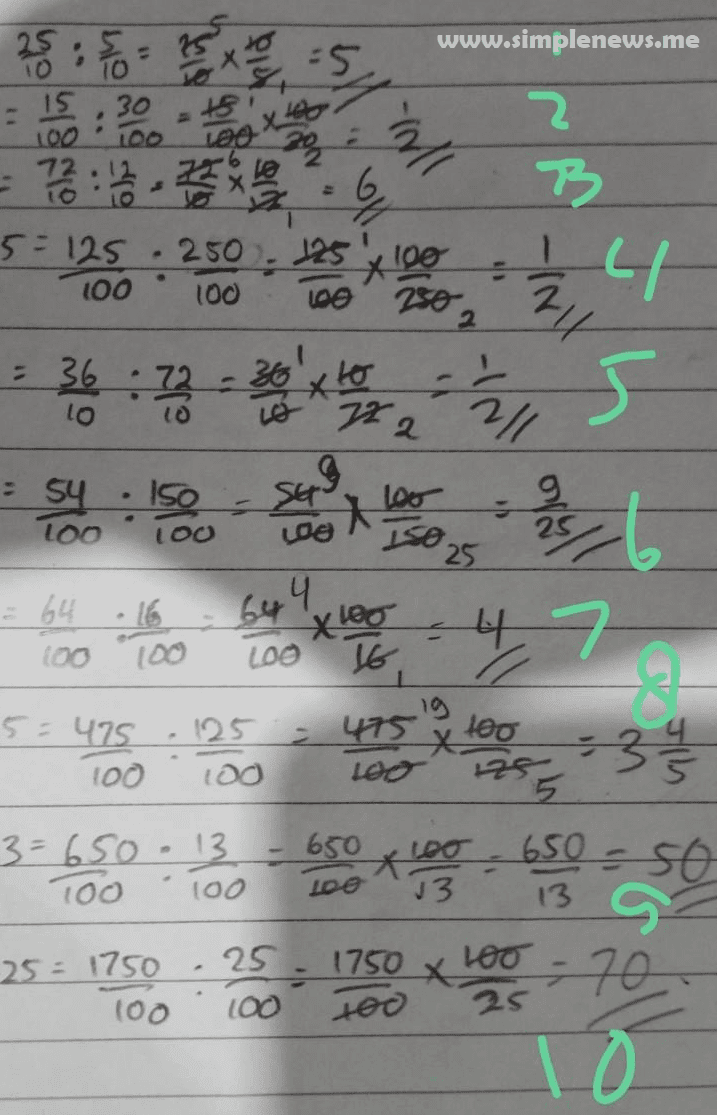 www.simplenews.me
25/10 : 5/10 = 25/10 5 × 10/5 1 = 5 1
= 15/100 : 30/100 = 15/100 1 × 100/30 2 = 1/2 2
= 72/10 : 12/10 = 72/10 6 × 10/12 1 = 6 3
5 = 125/100 : 250/100 = 125/100 1 × 100/250 2 = 1/2 4
= 36/10 : 72/10 = 36/10 1 × 10/72 2 = 1/2 5
= 54/100 : 150/100 = 54/100 9 × 100/150 25 = 9/25 6
= 64/100 : 16/100 = 64/100 4 × 100/16 1 = 4 7
5 = 475/100 : 125/100 = 475/100 19 × 100/125 5 = 3 4/5 8
3 = 650/100 : 13/100 = 650/100 × 100/13 = 650/13 = 50 9
25 = 1750/100 : 25/100 = 1750/100 × 100/25 = 70 10